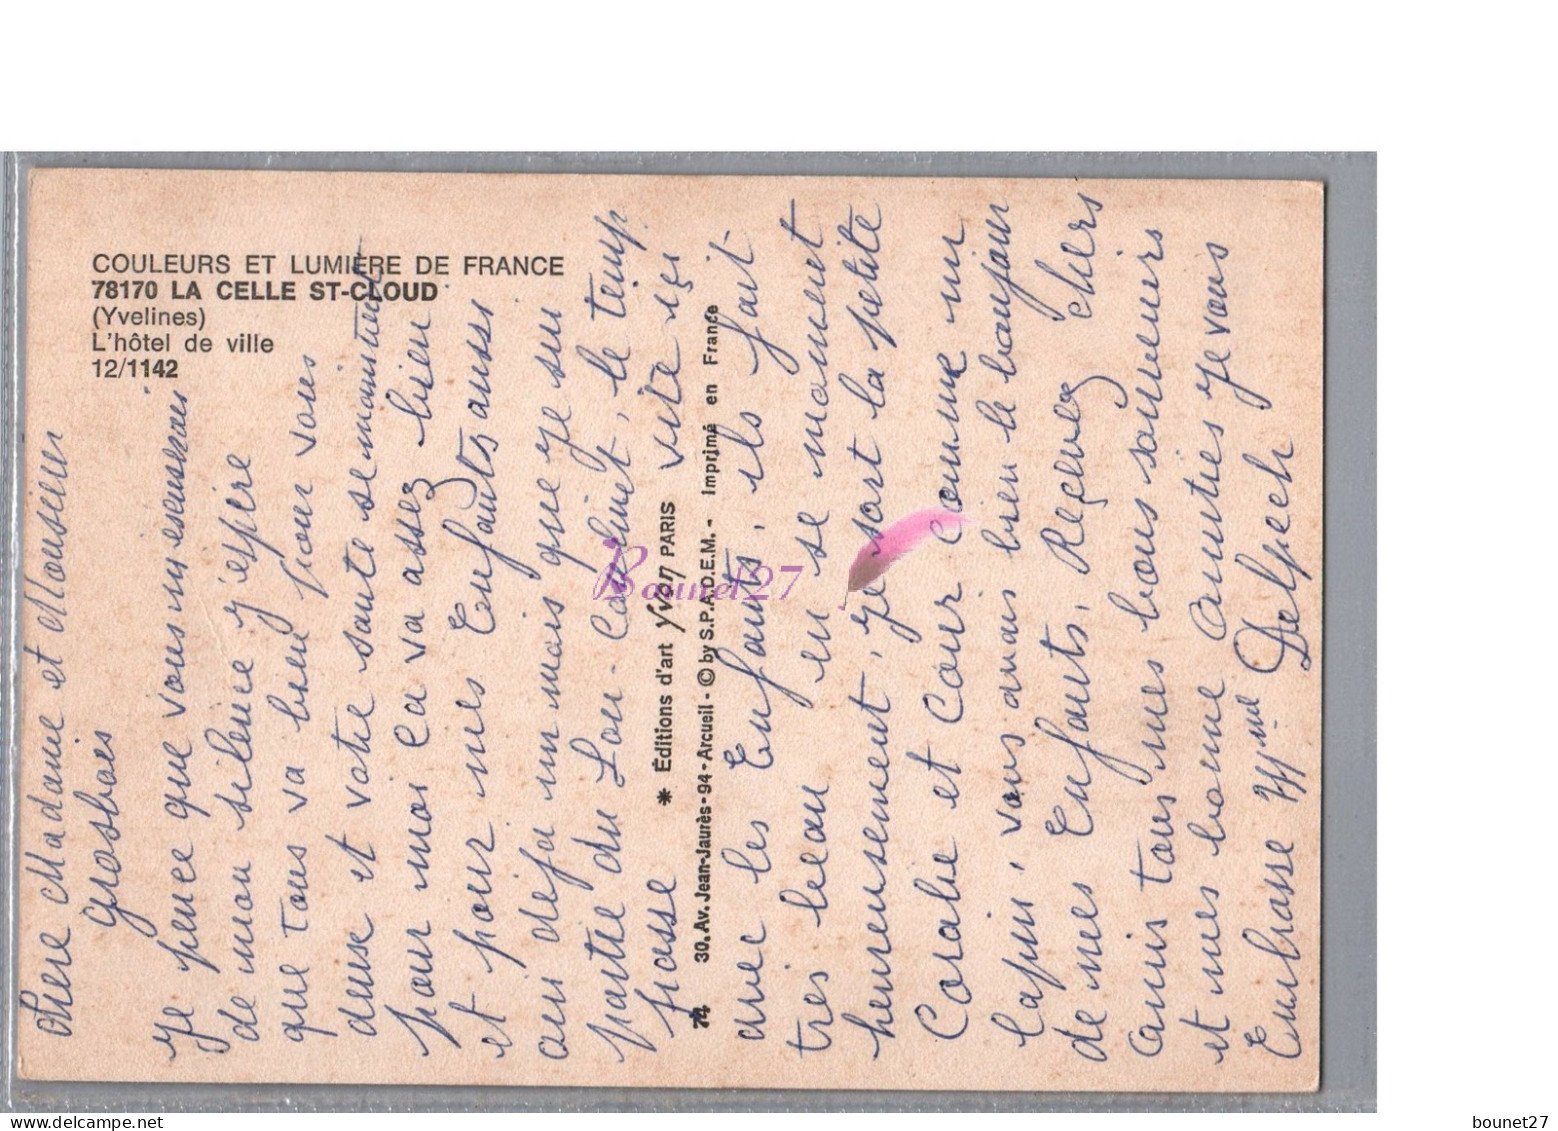 COULEURS ET LUMIÈRE DE FRANCE
78170 LA CELLE ST-CLOUD
(Yvelines)
L'hôtel de ville
12/1142
Chere Madame et Monsieur
Grosbois
Je pence que vous
de mon silence j'espère
que tous va bien pour vous
danse et votre sante se maintient
pour moi ca va assez bien
et pour mes Enfants aussi
ausi deja un mois que je sui
partie du Lou-Cabinet, le temp
passe vite içi
avec les Enfants, ils fait
tres beau en se moment
heureusement, je sort la petite
Coralie et Cour comme un
lapin, vous avais bien le bonjour
de mes Enfants, Reçevez chers
amis tous mes bons souvenirs
et mes bonne amities je vous
Embrasse Mme Delpech
* Éditions d'art Yvon PARIS
74 30, Av. Jean-Jaurès - 94 - Arcueil - © by S.P.A.D.E.M. - Imprimé en France
Bounet27
bounet27